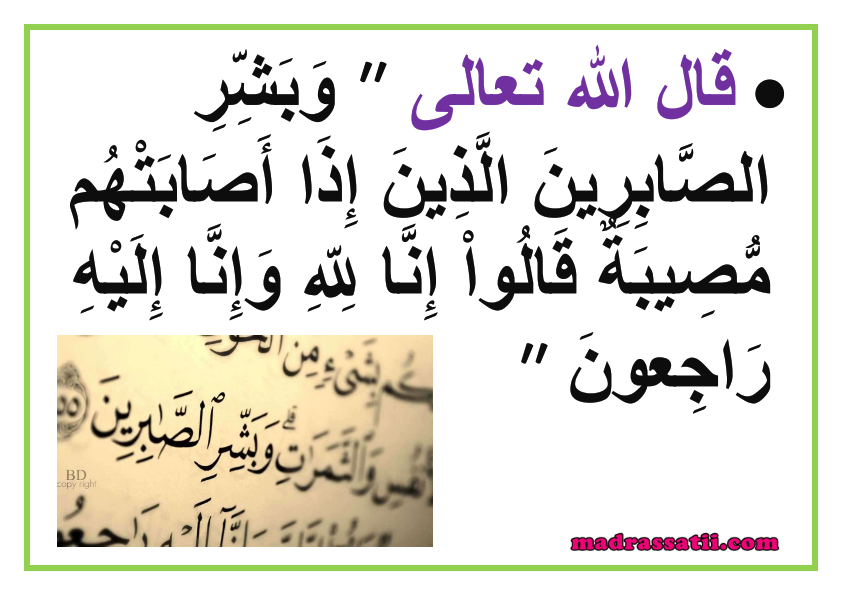 • قال الله تعالى " وَبَشِّرِ
الصَّابِرِينَ الَّذِينَ إِذَا أَصَابَتْهُم
مُّصِيبَةٌ قَالُواْ إِنَّا لِلّهِ وَإِنَّا إِلَيْهِ
رَاجِعونَ "
بِشَىْءٍ مِّنَ الْخَوْفِ
وَالثَّمَرَٰتِ ۗ وَبَشِّرِ ٱلصَّٰبِرِينَ
BD
copy right
madrassatii.com